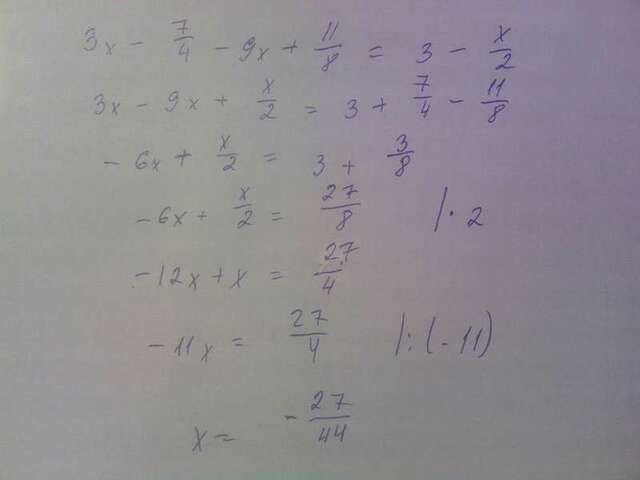 3x - 7/4 - 9x + 11/8 = 3 - x/2
3x - 9x + x/2 = 3 + 7/4 - 11/8
- 6x + x/2 = 3 + 3/8
- 6x + x/2 = 27/8 |· 2
- 12x + x = 27/4
- 11x = 27/4 |: (- 11)
x = - 27/44